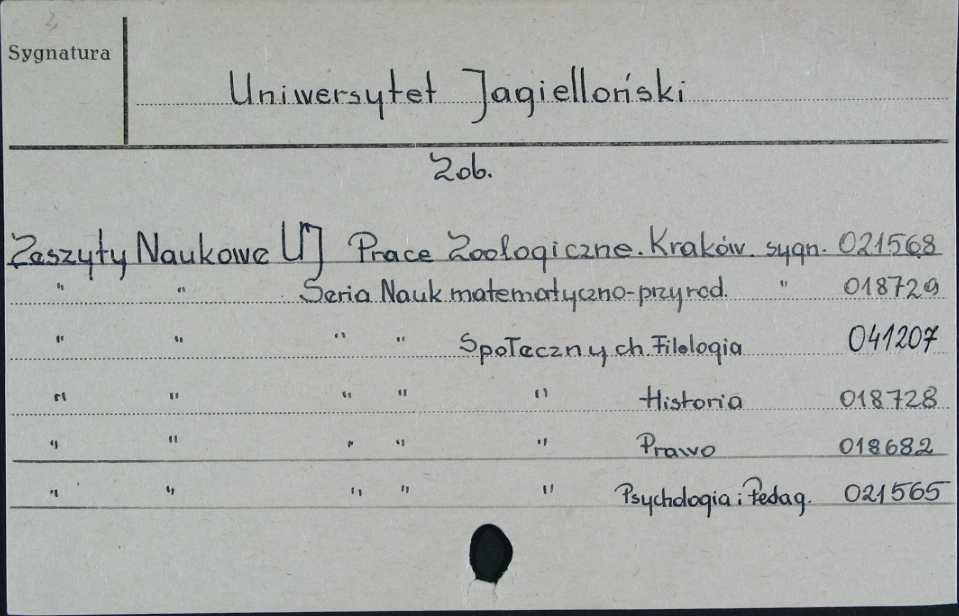 Sygnatura
Uniwersytet Jagielloński
Zob.
Zeszyty Naukowe UJ Prace Zoologiczne. Kraków. sygn. 021568
" " Seria Nauk matematyczno-przyrod. " 018729
" " " " Społecznych Filologia 041207
" " " " " Historia 018728
" " " " " Prawo 018682
" " " " " Psychologia i Pedag. 021565